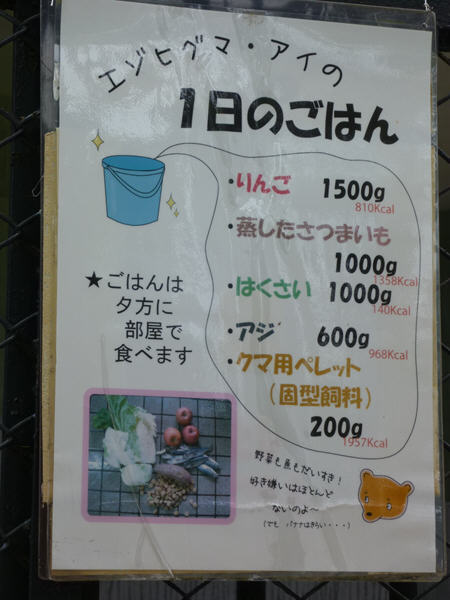 エゾヒグマ・アイの
1日のごはん
・りんご 1500g
810Kcal
・蒸したさつまいも
1000g
1358Kcal
・はくさい 1000g
140Kcal
・アジ 600g
968Kcal
・クマ用ペレット
（固型飼料）
200g
1957Kcal
★ごはんは
夕方に
部屋で
食べます
野菜も魚もだいすき！
好き嫌いはほとんど
ないのよ〜
（でも バナナはきらい・・・）